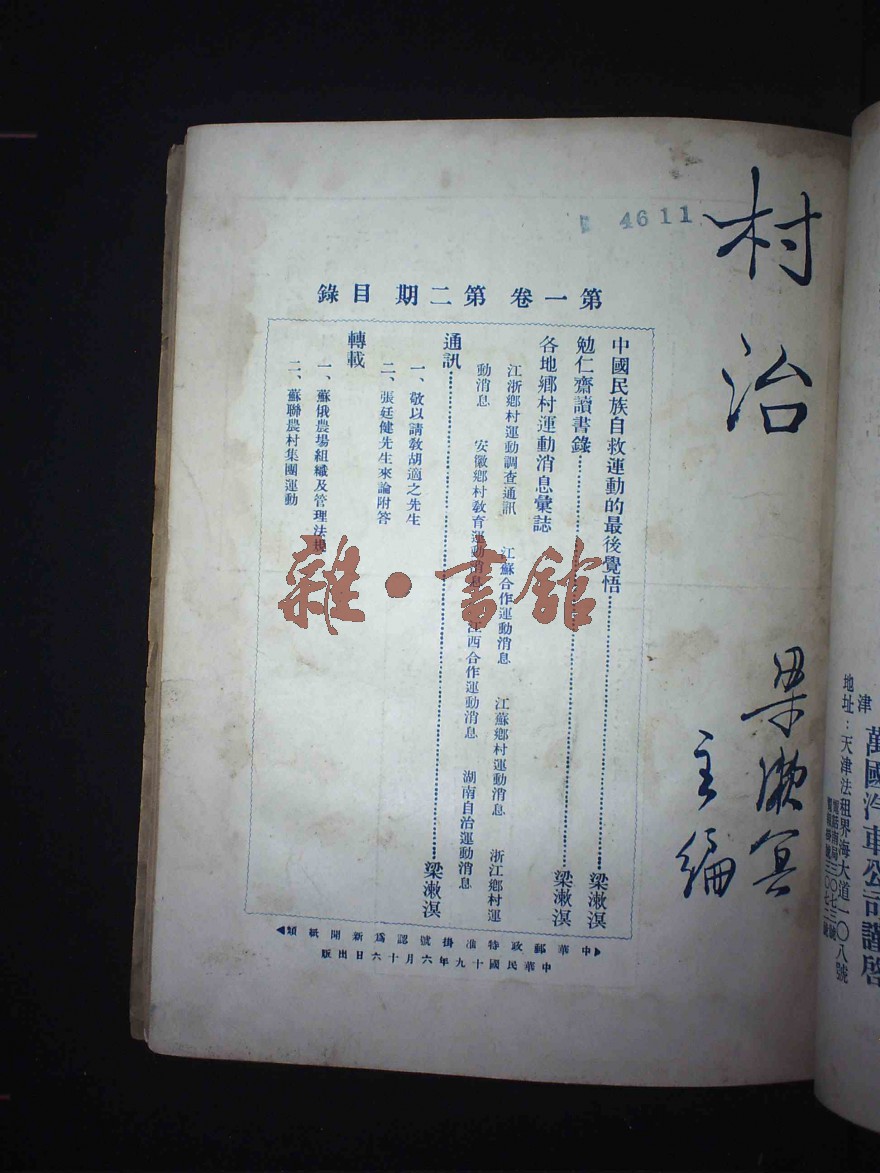 村治
梁漱冥
主編
4611
第一卷 第二期 目錄
中國民族自救運動的最後覺悟……梁漱溟
勉仁齋讀書錄……梁漱溟
各地鄉村運動消息彙誌
江浙鄉村運動調查通訊 江蘇合作運動消息 江蘇鄉村運動消息 浙江鄉村運
動消息 安徽鄉村教育運動消息 江西合作運動消息 湖南自治運動消息
通訊……梁漱溟
一、敬以請教胡適之先生
二、張廷健先生來論附答
轉載
一、蘇俄農場組織及管理法規
二、蘇聯農村集團運動
中華郵政特准掛號認爲新聞紙類
中華民國十九年六月十六日出版
雜·書館
津
萬國汽車公司謹啓
地址：天津法租界海大道一〇八號